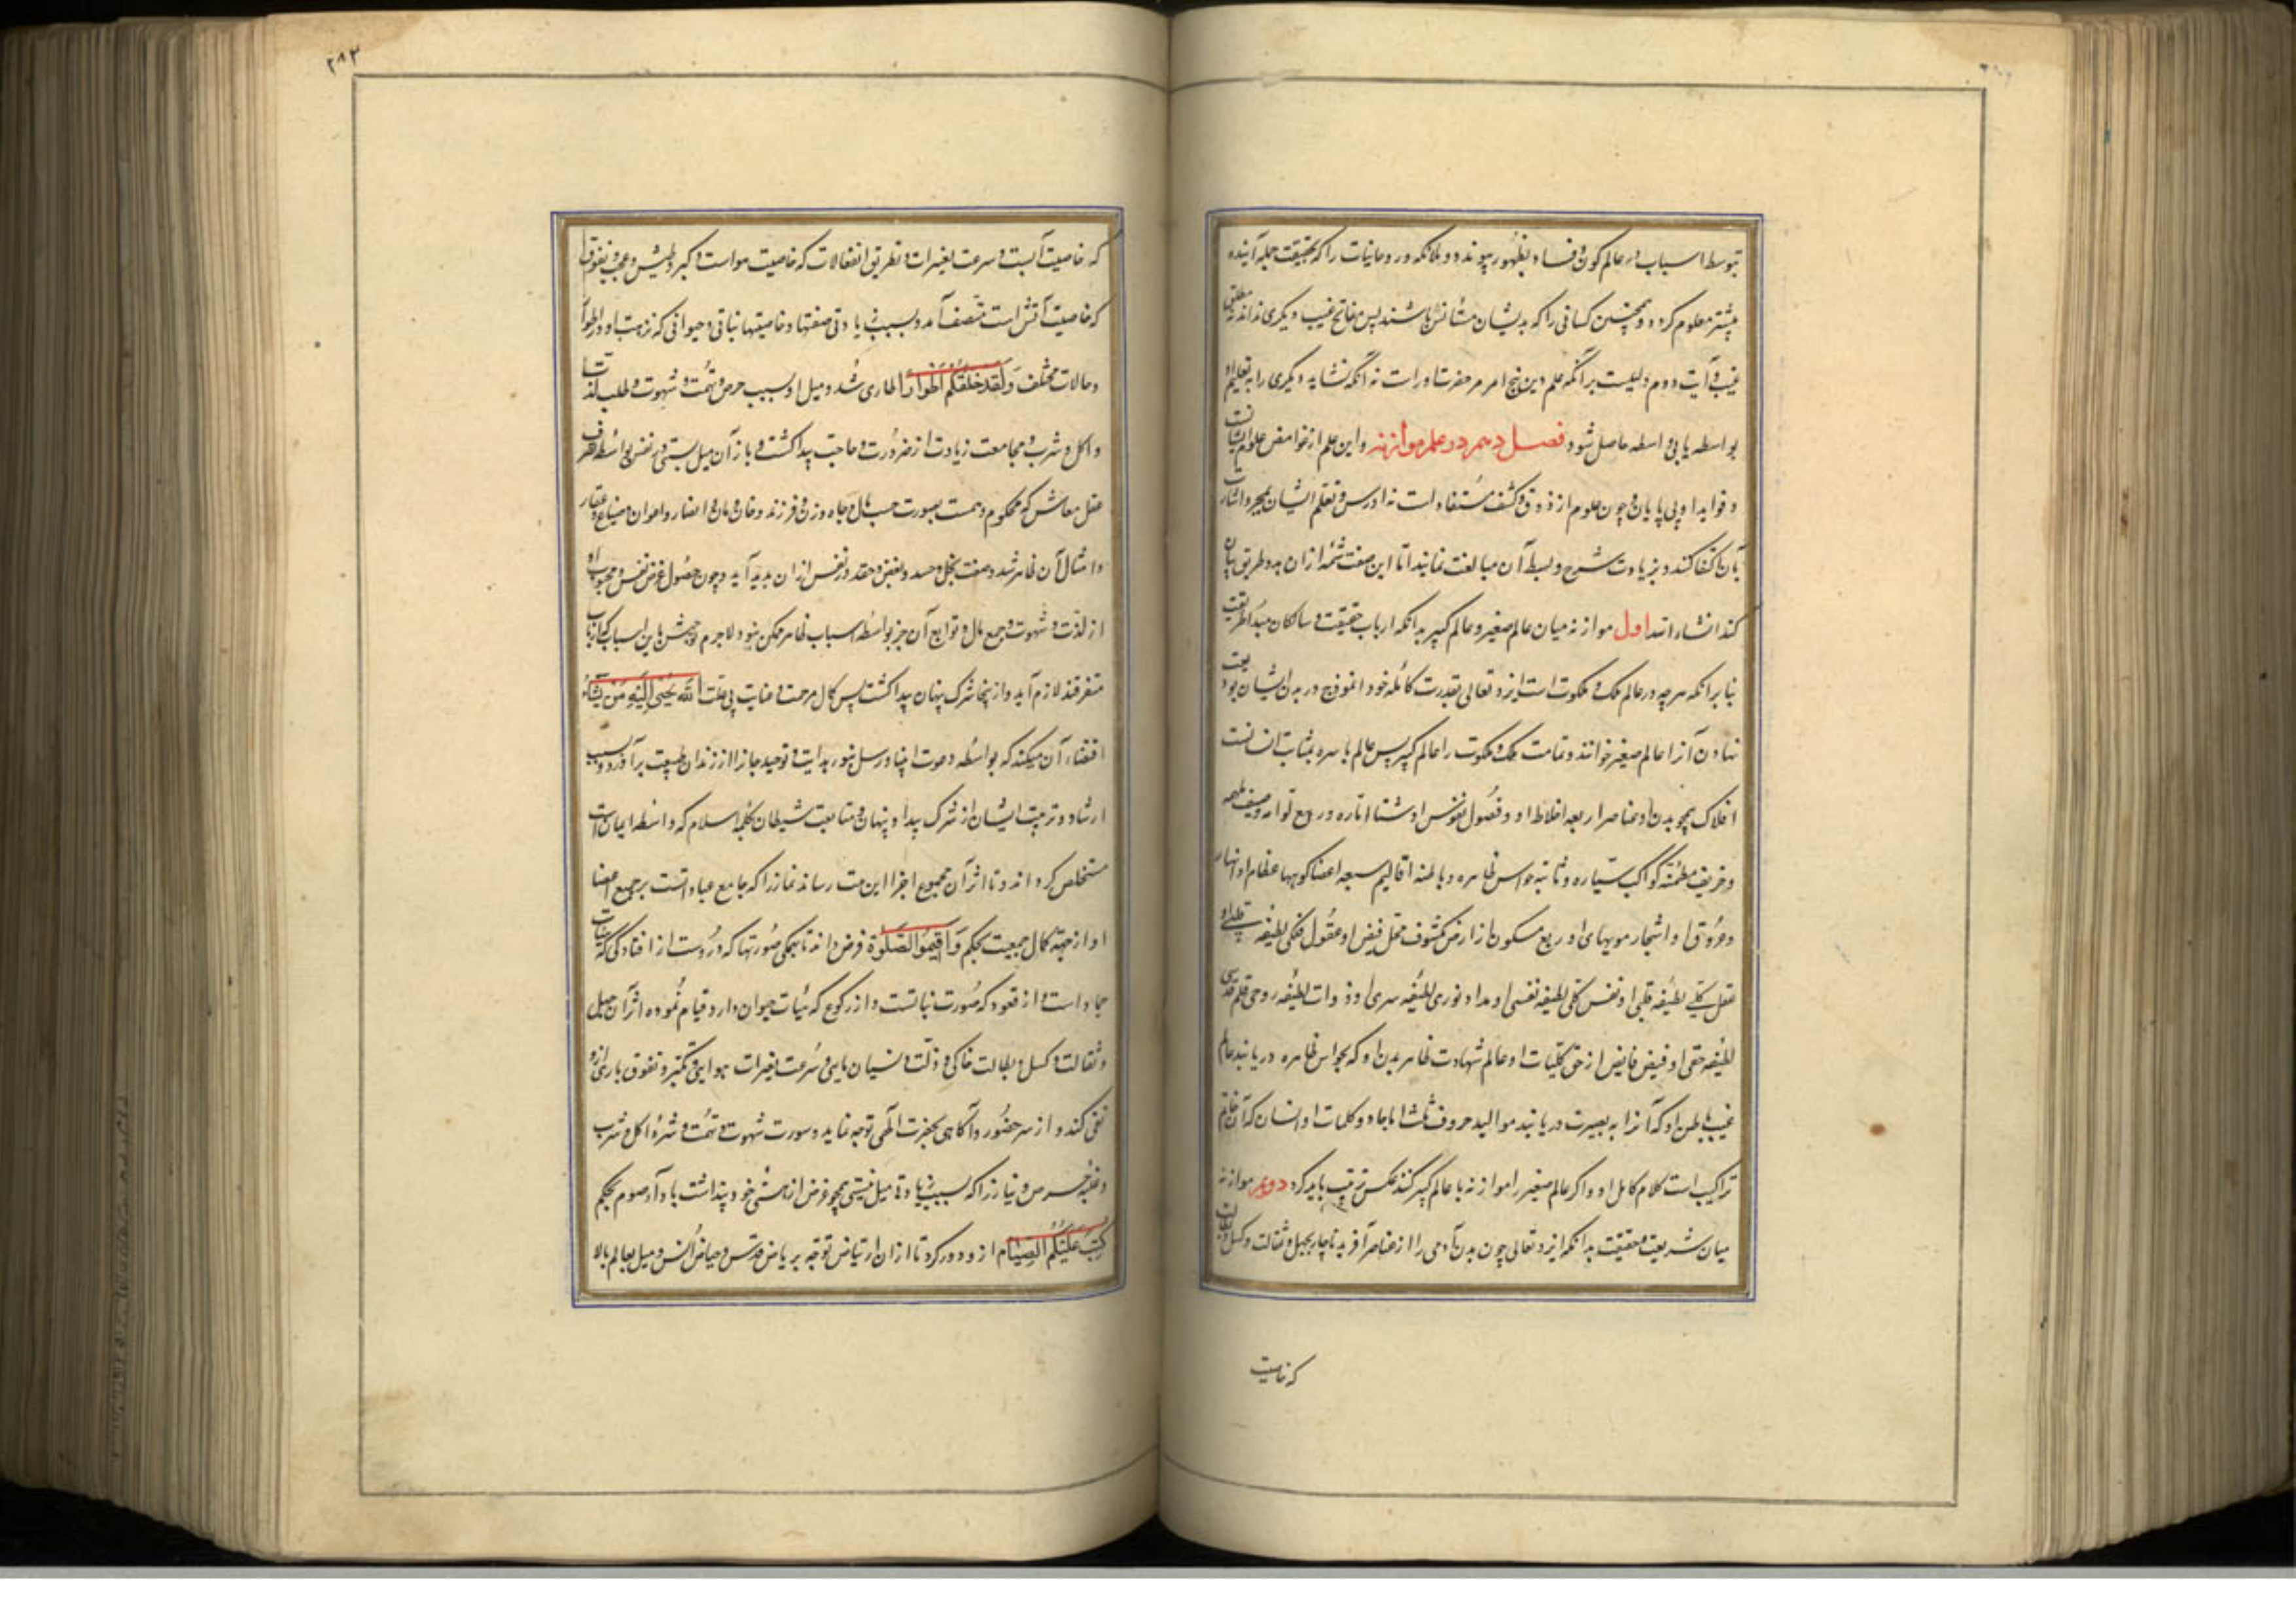 بتوسط اسباب در عالم کون و فساد بظهور پیوندد و ملائکه و روحانیات را که بحقیقت جمله آینده
پیشتر معلوم کردد و همچنین کسانی را که بدیشان متشابه باشند پس مفاتح غیب دیکری نداند نه مطلق
غیب و آیت دوم دلیلست بر آنکه علم این پنج امر مر حضرت اوراست نه آنکه نشاید دیکری را به تعلیم او
بواسطه یا بی واسطه حاصل شود فصل دهم در علم موازنه و این علم از غوامض علوم ایشانست
و فواید او بی پایان و چون علوم از ذوق و کشف مستفاد است نه از درس و تعلم ایشان بمجرد اشارت
بآن اکتفا کنند و بزیادت شرح و بسط آن مبالغت ننمایند اما این ضعیف شمه از آن بدو طریق بیان
کند انشاء الله اول موازنه میان عالم صغیر و عالم کبیر بدانکه ارباب حقیقت و سالکان مبدا طریقت
بنابر آنکه هرچه در عالم ملک و ملکوت است ایزد تعالی بقدرت کامله خود انموذج در بدن ایشان بودیعت
نهاد بدن آنرا عالم صغیر خوانند و تمامت ملک و ملکوت را عالم کبیر پس عالم باسره بمثابت انسانست
افلاک همچو بدن او عناصر اربعه اخلاط او و فصول نفوس او شتا اماره و ربیع لوامه و صیف ملهمه
و خریف مطمئنه کواکب سیاره و ثابته حواس ظاهره و باطنه اقالیم سبعه اعضا کوهها عظام او انهار
و عروق او اشجار مویهای او ربع مسکون از ارض مکشوف محل فیض او عقول فلکی لطیفه قلبی او
عقل کلی لطیفه قلبی او نفس کلی لطیفه نفسی او مداد نوری لطیفه سری او دوات لطیفه روحی قلم قدسی
لطیفه حقی او فیض فایض از حق کلیات او عالم شهادت ظاهر بدن او که بحواس ظاهره دریابند عالم
غیب باطن او که آنرا به بصیرت دریابند موالید حروف ثلثه او اما جماد و کلمات او انسان که آن خاتم
تراکیب است کلام کامل او و اکر عالم صغیر را موازنه با عالم کبیر کنند عکس ترتیب باید کرد دویم موازنه
میان شریعت و حقیقت بدانکه ایزد تعالی چون بدن آدمی را از عناصر آفرید ناچار بجهل و ثقالت و کسل و
که خاصیت
۲۸۳
که خاصیت آبست و سرعت تغیرات و تطریق انفعالات که خاصیت هواست و کبر و طیش و عجب و تفوق
که خاصیت آتش است متصف آمد و بسبب زیادتی صفتها و خاصیتها نباتی و حیوانی که تربیت او در اطوار
و حالات مختلف وَلَقَد خَلَقَكُم اَطْوَارًا طاری شد و میل او بسبب حرص و نهمت و شهوت و طلب لذات
و اکل و شرب و مجامعت زیادت از ضرورت و حاجت پیدا کشت و باز آن میل بستی در نفس بواسطه تصرف
عقل معاش که محکوم وهمست بصورت حب مال و جاه و زن و فرزند و خان و مان و انصار و اعوان و ضیاع و عقار
و امثال آن ظاهر شد و صفت بخل و حسد و بغض و حقد در نفس از آن پدید آید و چون حصول غرض نفس و محبوب او
از لذت و شهوت و جمع مال و توابع آن جز بواسطه اسباب ظاهر ممکن نبود لاجرم توجهش باین اسباب که ارباب
متفرقند لازم آید و از اینجا شرک پنهان پیدا کشت پس کمال مرحمت و عنایت بی علت اَللّٰهُ یَجْتَبِی اِلَیْهِ مَنْ یَشَاءُ
اقتضاء آن میکند که بواسطه دعوت انبیا و رسل بنور هدایت و توحید جانرا از زندان طبیعت برآورد و بسبب
ارشاد و تربیت ایشان از شرک پیدا و پنهان و متابعت شیطان بکلمه اسلام که واسطه ایمان است
مستخلص کرداند و تا اثر آن بمجموع اجزا این امت رساند نماز را که جامع عبادتست بر جمیع اعضا
او از جهة کمال جمعیت بحکم وَاَقِیمُوا الصَّلٰوةَ فرض داند تا بهمکی صورتها که در اوست از افتادکی که هیأت
جماد است و از قعود که صورت نباتست و از رکوع که هیئات حیوان دارد و قیام نموده اثر آن جهل
و ثقالت و کسل و بطالت خاکی و ذلت و نسیان مایی و سرعت تغیرات هوایی و تکبر و تفوق ناری از و
نفی کند و از سر حضور و آکاهی بحضرت الهی توجه نماید و سورت شهوت و نهمت و شره اکل و شرب
و غلبه حرص و نیاز را که بسبب زیادتی میل بستی همچو غرض از هستی خود پنداشت با و آرد صوم بحکم
کُتِبَ عَلَیْکُمُ الصِّیَامُ از و دور کرد تا از آن ارتیاض توجه بریاض قدس و حیاض انس و میل بعالم بالا